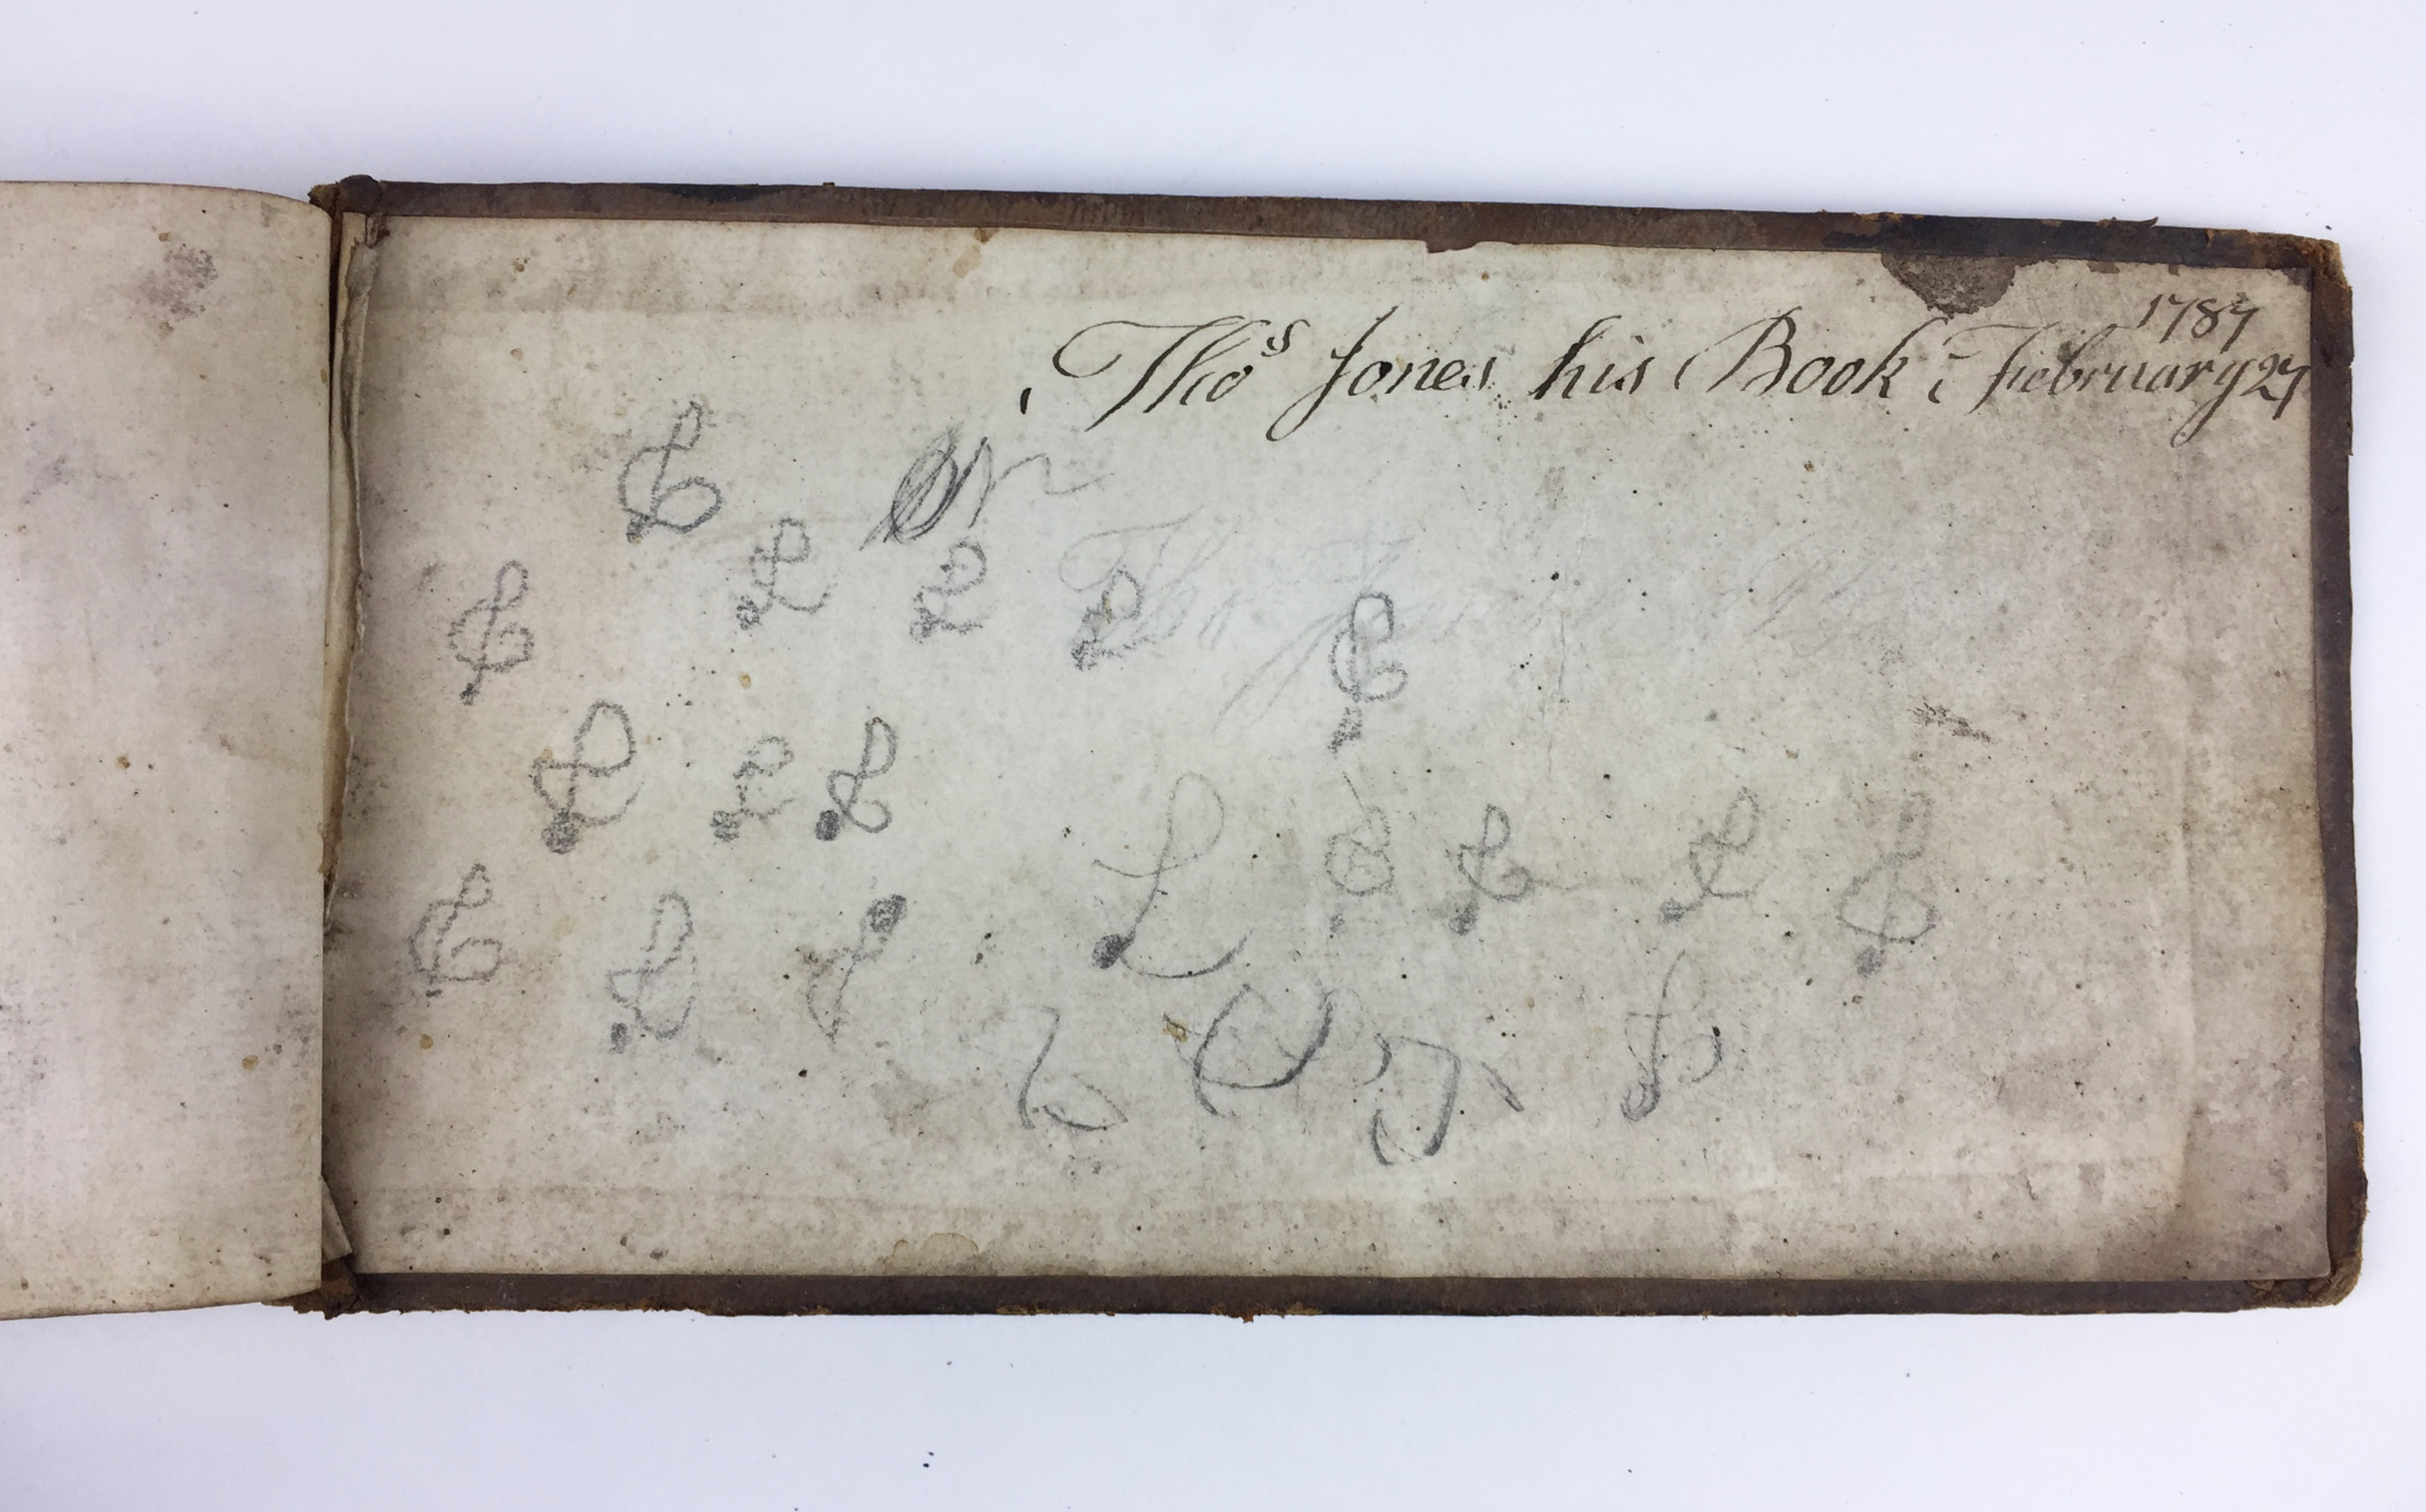 1787
Thoˢ Jones his Book February 27